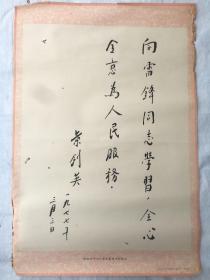 向雷鋒同志學習，全心
全意為人民服務。
葉劍英
一九七七年
二月廿二日